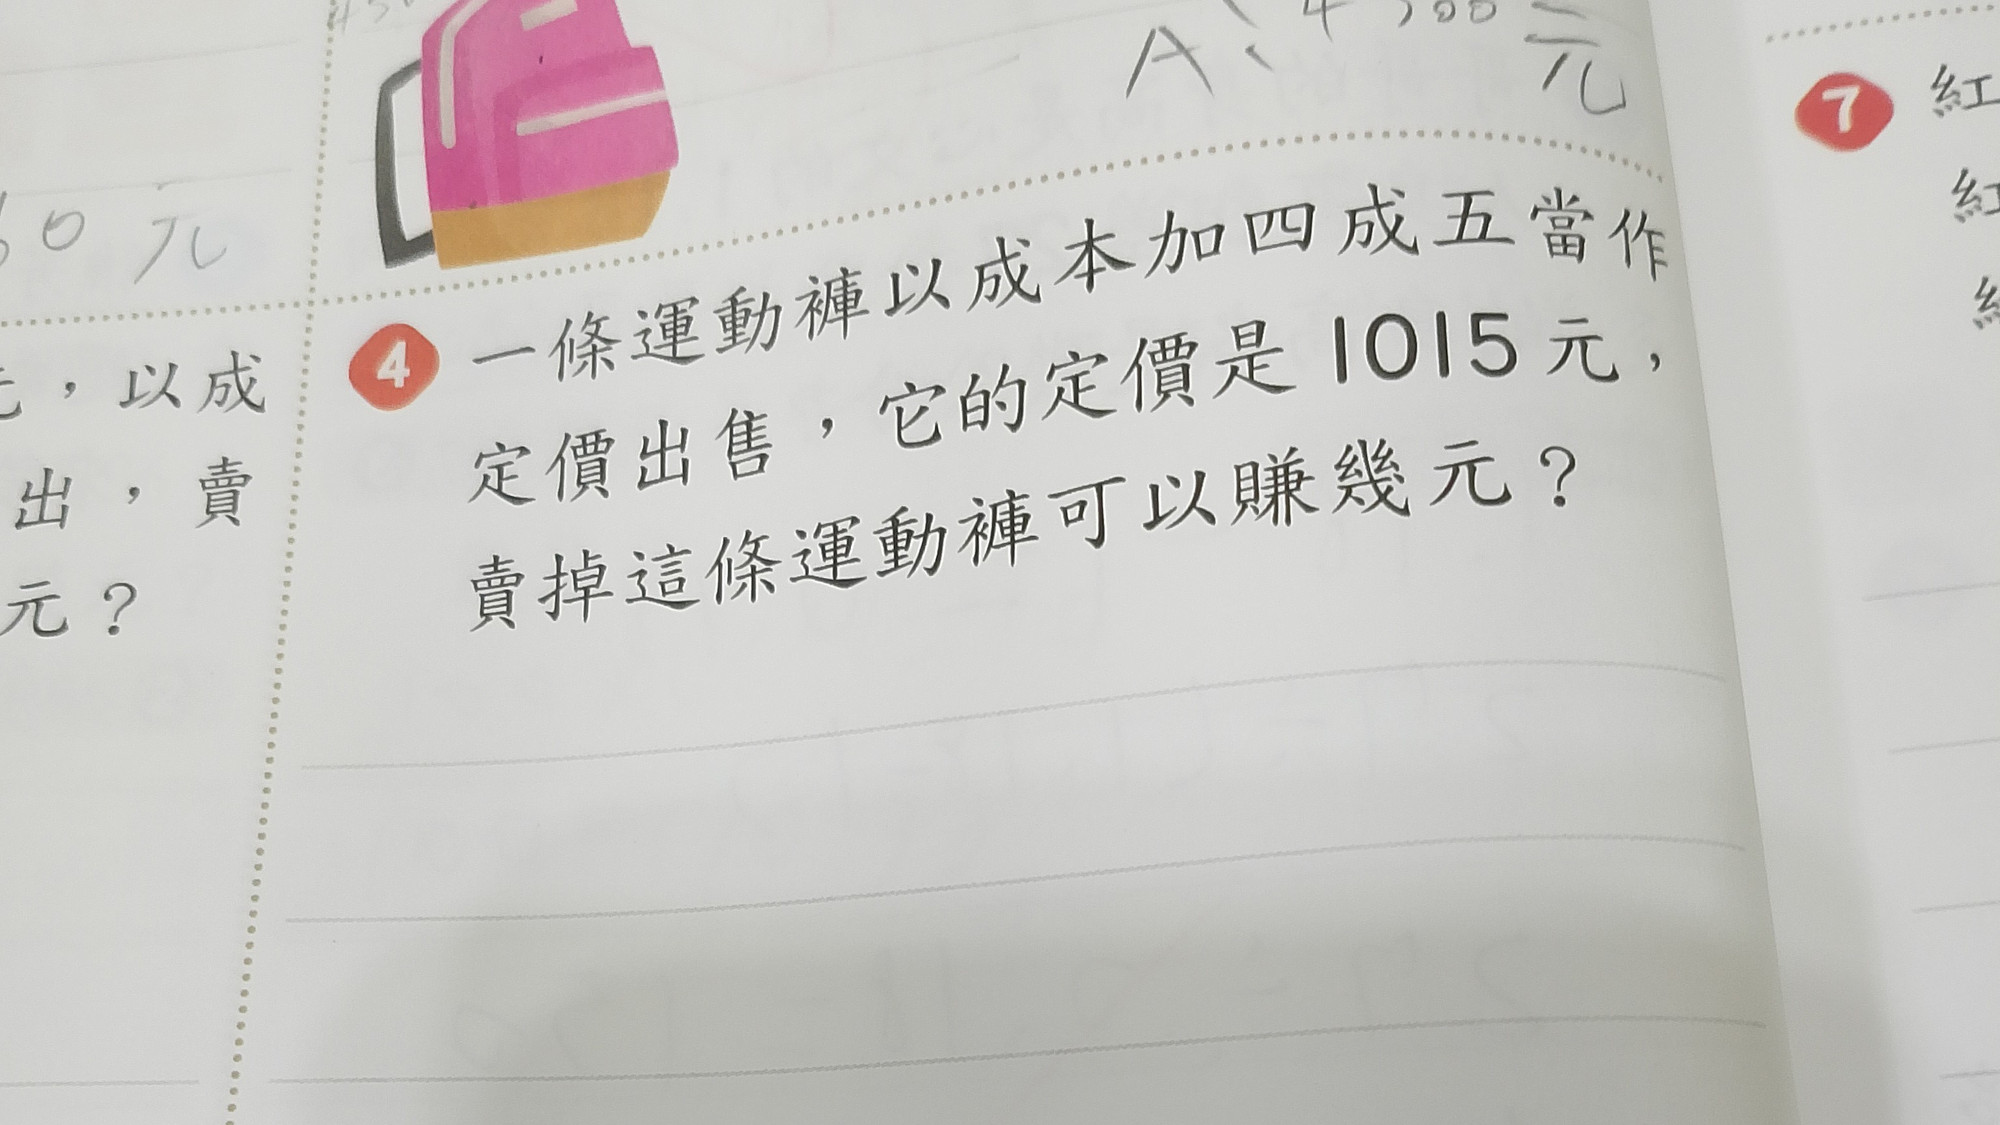 A: 4300元
60元
元，以成
出，賣
元？
4 一條運動褲以成本加四成五當作
定價出售，它的定價是1015元，
賣掉這條運動褲可以賺幾元？
7 紅
紅